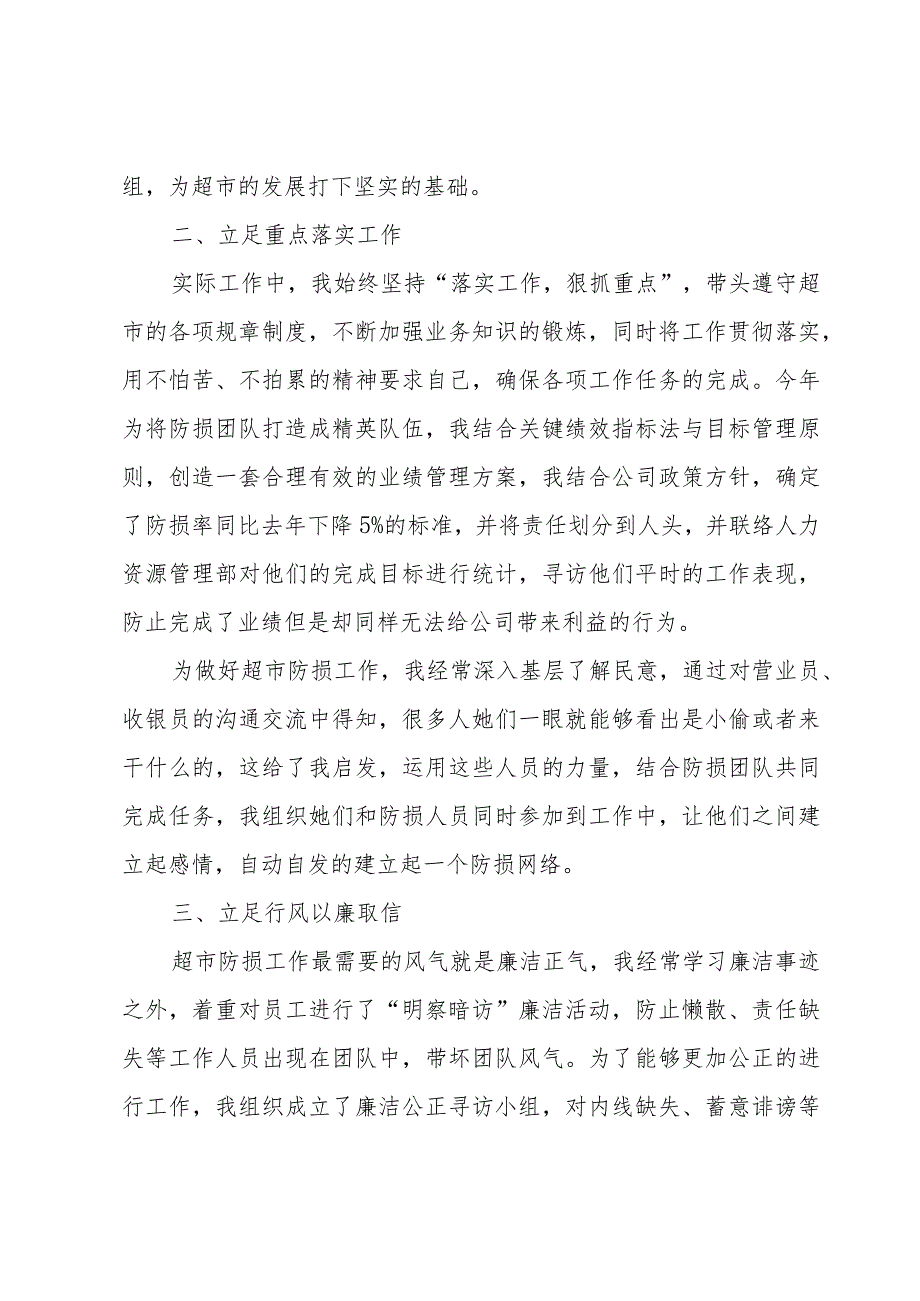 组，为超市的发展打下坚实的基础。
二、立足重点落实工作
实际工作中，我始终坚持“落实工作，狠抓重点”，带头遵守超
市的各项规章制度，不断加强业务知识的锻炼，同时将工作贯彻落实，
用不怕苦、不拍累的精神要求自己，确保各项工作任务的完成。今年
为将防损团队打造成精英队伍，我结合关键绩效指标法与目标管理原
则，创造一套合理有效的业绩管理方案，我结合公司政策方针，确定
了防损率同比去年下降 5%的标准，并将责任划分到人头，并联络人力
资源管理部对他们的完成目标进行统计，寻访他们平时的工作表现，
防止完成了业绩但是却同样无法给公司带来利益的行为。
为做好超市防损工作，我经常深入基层了解民意，通过对营业员、
收银员的沟通交流中得知，很多人她们一眼就能够看出是小偷或者来
干什么的，这给了我启发，运用这些人员的力量，结合防损团队共同
完成任务，我组织她们和防损人员同时参加到工作中，让他们之间建
立起感情，自动自发的建立起一个防损网络。
三、立足行风以廉取信
超市防损工作最需要的风气就是廉洁正气，我经常学习廉洁事迹
之外，着重对员工进行了“明察暗访”廉洁活动，防止懒散、责任缺
失等工作人员出现在团队中，带坏团队风气。为了能够更加公正的进
行工作，我组织成立了廉洁公正寻访小组，对内线缺失、蓄意诽谤等